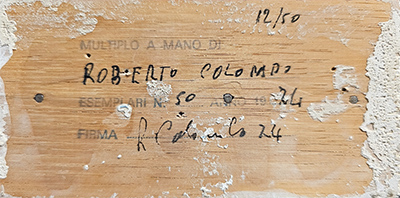 12/50
MULTIPLO A MANO DI
ROBERTO COLOMBO
ESEMPLARI N. 50 ANNO 19 74
FIRMA R Colombo 74